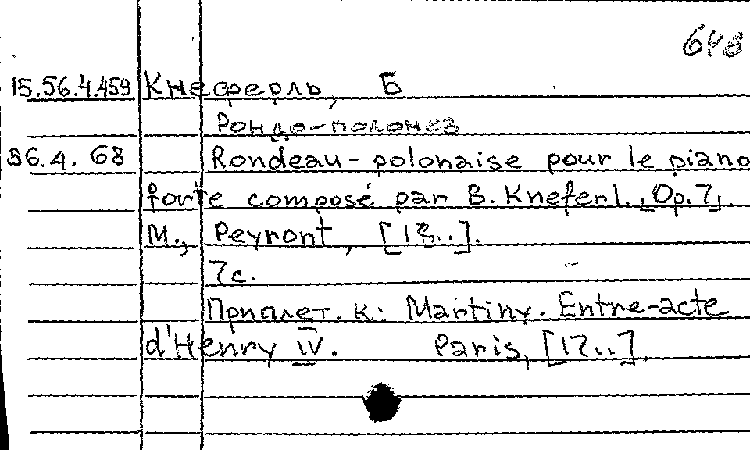 648
15.56.4.459 Кнеферль, Б
Рондо-полонез
86.4.68 Rondeau-polonaise pour le piano
forte composé par B. Kneferl. Op.7
М., Peyront, [18..].
7с.
Приплет. к: Martiny. Entre-acte
d'Henry IV. Paris, [17..].